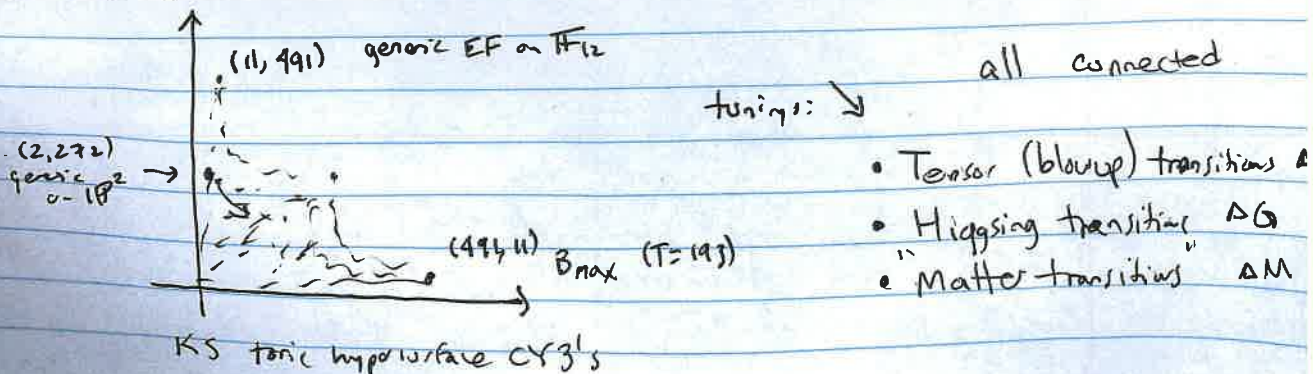 (11, 491) generic EF on 𝔽₁₂
all connected
tunings: ↘
(2,272)
generic
on ℙ² →
• Tensor (blowup) transitions Δ
• "Higgsing transitions" ΔG
(491, 11) Bmax (T=193)
• Matter transitions ΔM
KS toric hypersurface CY3's